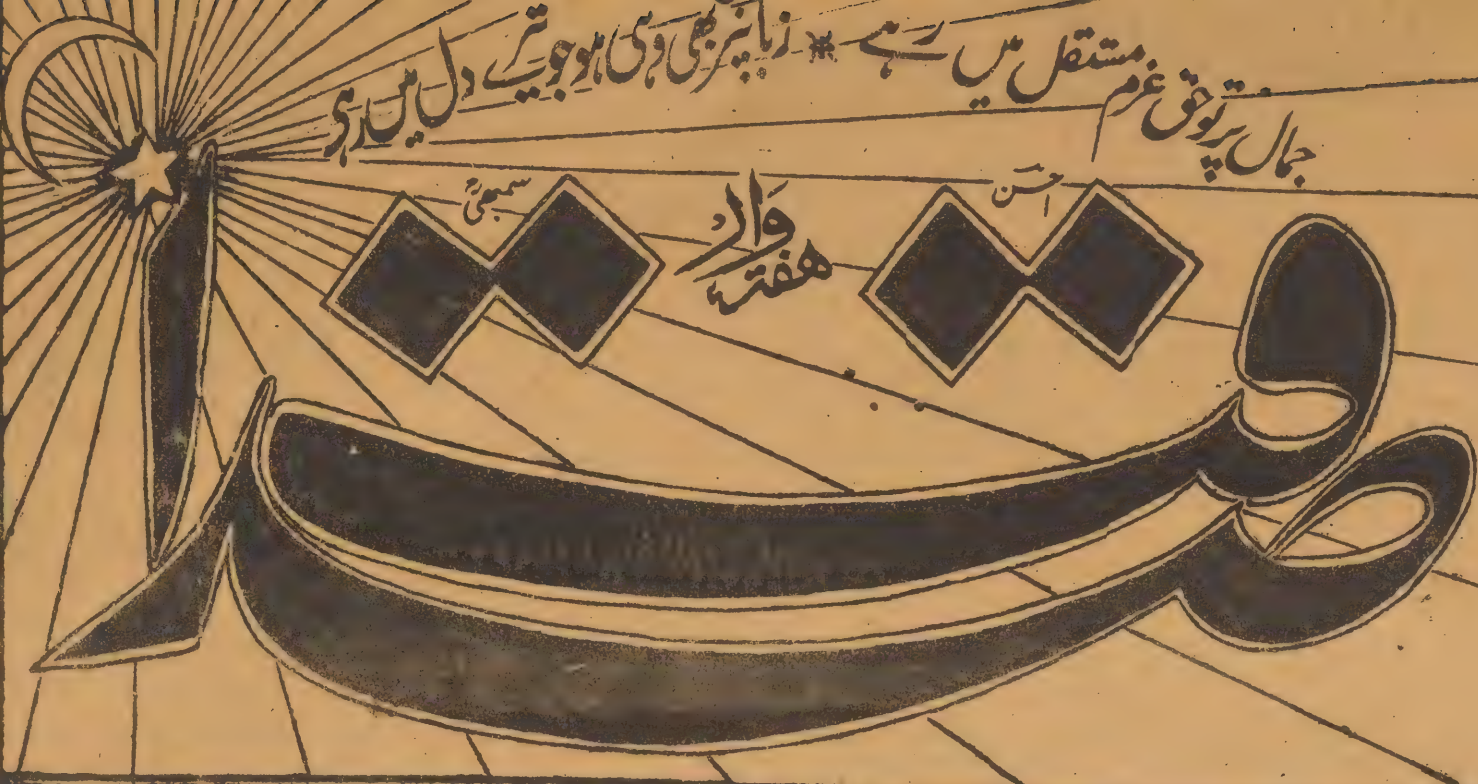 جمال پرتو حق عزم مستقل میں رہے * زباں پر بھی وہی ہو جو تیرے دل میں رہے
احسن
ہفتہ وار
صداقت